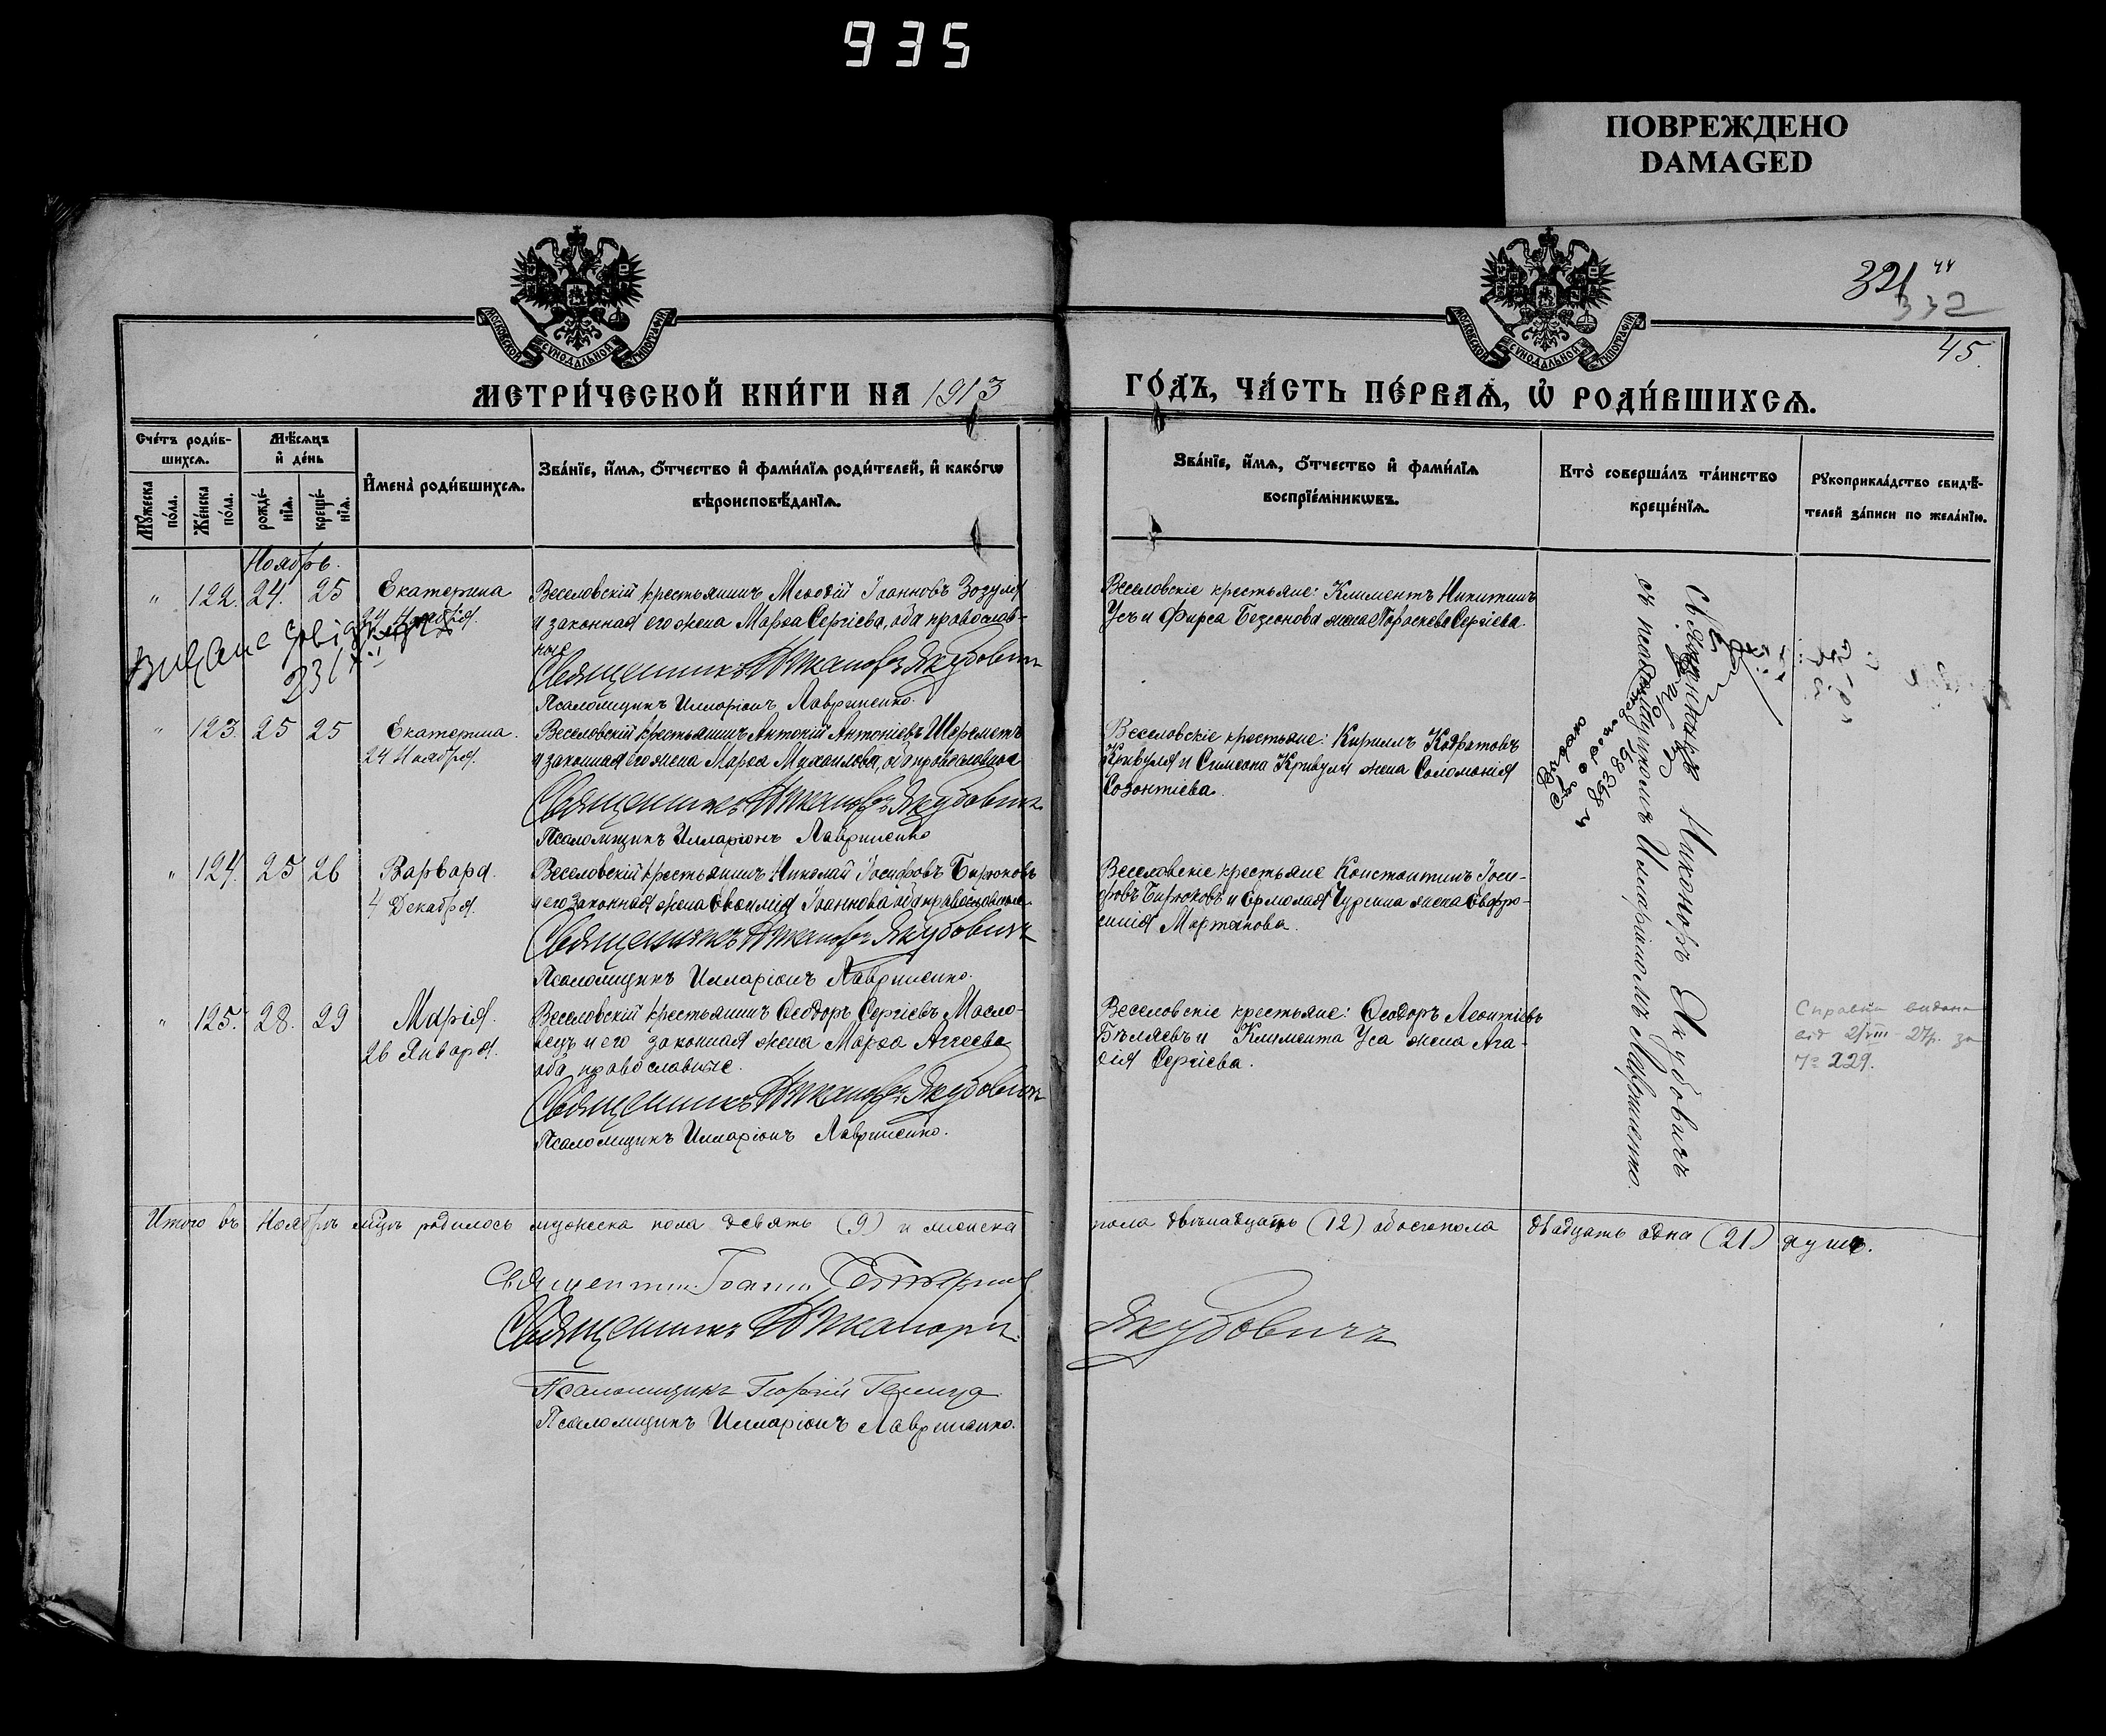 935
ПОВРЕЖДЕНО
DAMAGED
МОСКОВСКОЙ СУНОДАЛЬНОЙ ТИПОГРАФІИ
МОСКОВСКОЙ СУНОДАЛЬНОЙ ТИПОГРАФІИ
321 44
332
45.
МЕТРИ́ЧЕСКОЙ КНИ́ГИ НА 1913
ГО́ДЪ, ЧА́СТЬ ПЕ́РВАѦ, Ѡ҆ РОДИ́ВШИХСѦ.
Сче́тъ роди́в-
шихсѧ.
Мꙋ́жеска по́ла.
Же́нска по́ла.
Мѣ́сѧцъ
и҆ де́нь
рожде́-
нїѧ.
креще́-
нїѧ.
И҆мена̀ роди́вшихсѧ.
Зва́нїе, и҆́мѧ, ѻ҆́тчество и҆ фами́лїѧ роди́телей, и҆ како́гѡ
вѣроисповѣ́данїѧ.
Зва́нїе, и҆́мѧ, ѻ҆́тчество и҆ фами́лїѧ
воспрїе́мникѡвъ.
Кто̀ соверша́лъ та́инство
креще́нїѧ.
Рꙋкоприкла́дство свидѣ́-
телей за́писи по жела́нїю.
Ноябрь.
" 122. 24. 25 Екатерина
24 Ноября.
Веселовскій крестьянинъ Меѳодій Іоанновъ Зозуля
и законная его жена Марѳа Сергіева, оба православ-
ные
Священникъ Никаноръ Якубовичъ
Псаломщикъ Илларіонъ Лавриненко.
Веселовскіе крестьяне: Климентъ Никитинъ
Усъ и Фирса Безсонова жена Параскева Сергіева.
" 123. 25 25 Екатерина.
24 Ноября.
Веселовскій крестьянинъ Антоній Антоніевъ Шереметъ
и законная его жена Марѳа Михаилова, оба православные
Священникъ Никаноръ Якубовичъ
Псаломщикъ Илларіонъ Лавриненко
Веселовскіе крестьяне: Кириллъ Кодратовъ
Кривуля и Симеона Кривули жена Соломонія
Созонтіева.
" 124. 25 26 Варвара.
4 Декабря.
Веселовскій крестьянинъ Николай Іосифовъ Бирюковъ
и его законная жена Евѳимія Іоаннова оба православные
Священникъ Никаноръ Якубовичъ
Псаломщикъ Илларіонъ Лавриненко.
Веселовскіе крестьяне Константинъ Іоси-
фовъ Бирюковъ и Ермолая Чурсина жена Евфро-
синія Мартинова.
" 125. 28. 29 Марія.
26 Января.
Веселовскій крестьянинъ Ѳеодоръ Сергіевъ Масло-
вецъ и его законная жена Марѳа Аггеева
оба православные.
Священникъ Никаноръ Якубовичъ
Псаломщикъ Илларіонъ Лавриненко.
Веселовскіе крестьяне: Ѳеодоръ Леонтіевъ
Бѣляевъ и Климента Уса жена Ага-
ѳія Сергіева.
Священникъ Никаноръ Якубовичъ
съ псаломщикомъ Илларіономъ Лавриненко.
Выдано
Св. о рожден
893891
Справка видана
від 2/VIII - 27р. за
№ 229.
Итого въ Ноябрѣ мѣцѣ родилось мужеска пола девять (9) и женска пола двѣнадцать (12) обоего пола двадцать одна (21) душа.
Священникъ Іоаннъ
Священникъ Никаноръ Якубовичъ
Псаломщикъ Георгій
Псаломщикъ Илларіонъ Лавриненко.